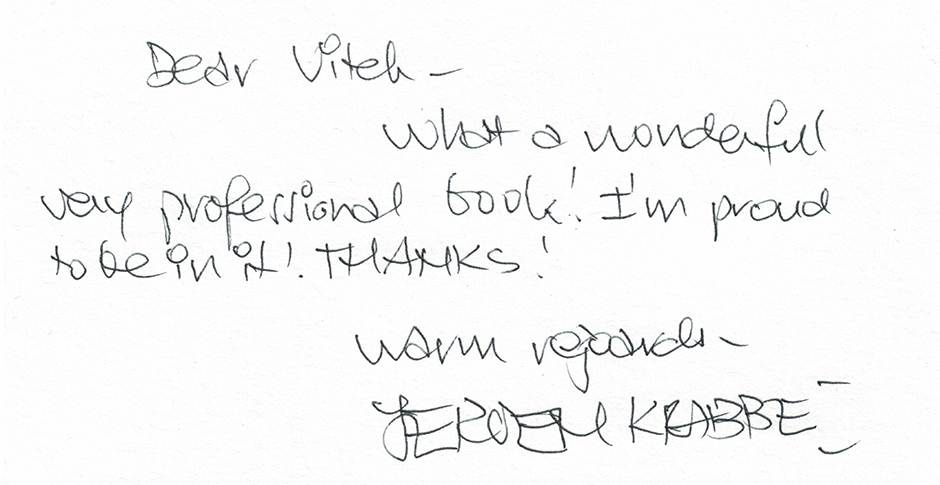 Dear Vitek –
What a wonderful
very professional book! I'm proud
to be in it! THANKS!
warm regards –
JEROEN KRABBE